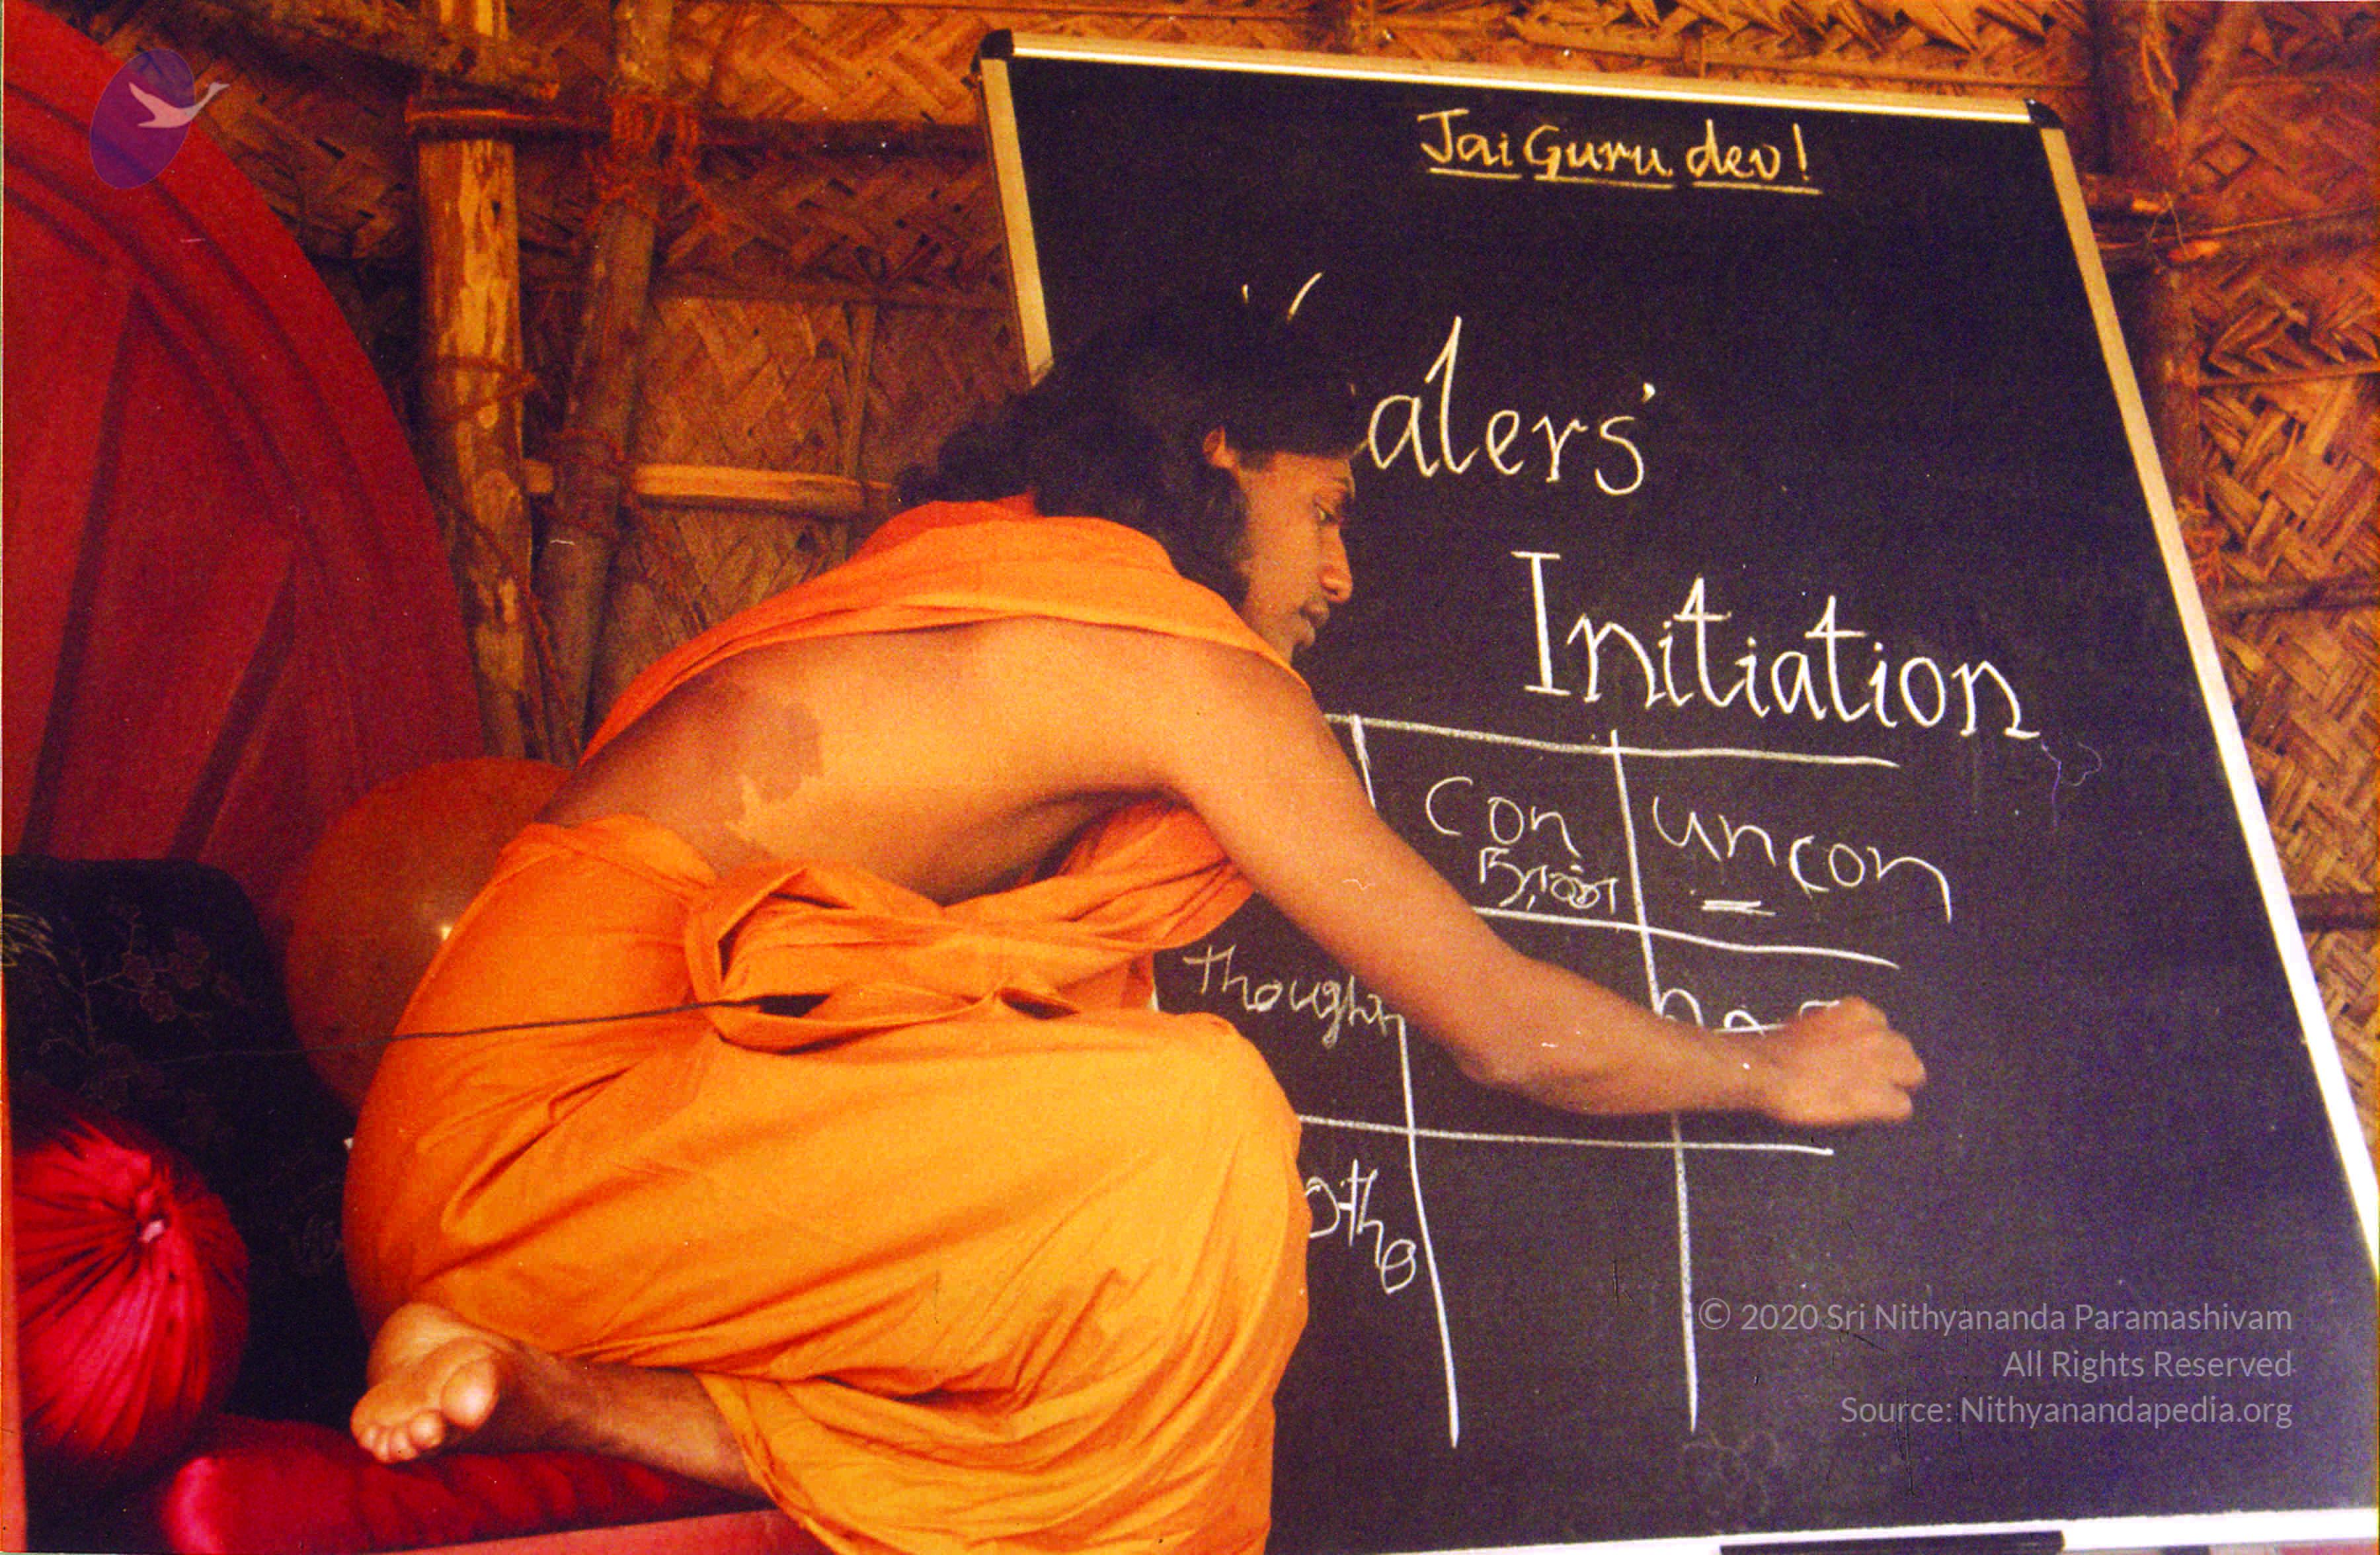 Jai Guru dev!
alers'
Initiation
con uncon
thought
othe
© 2020 Sri Nithyananda Paramashivam
All Rights Reserved
Source: Nithyanandapedia.org